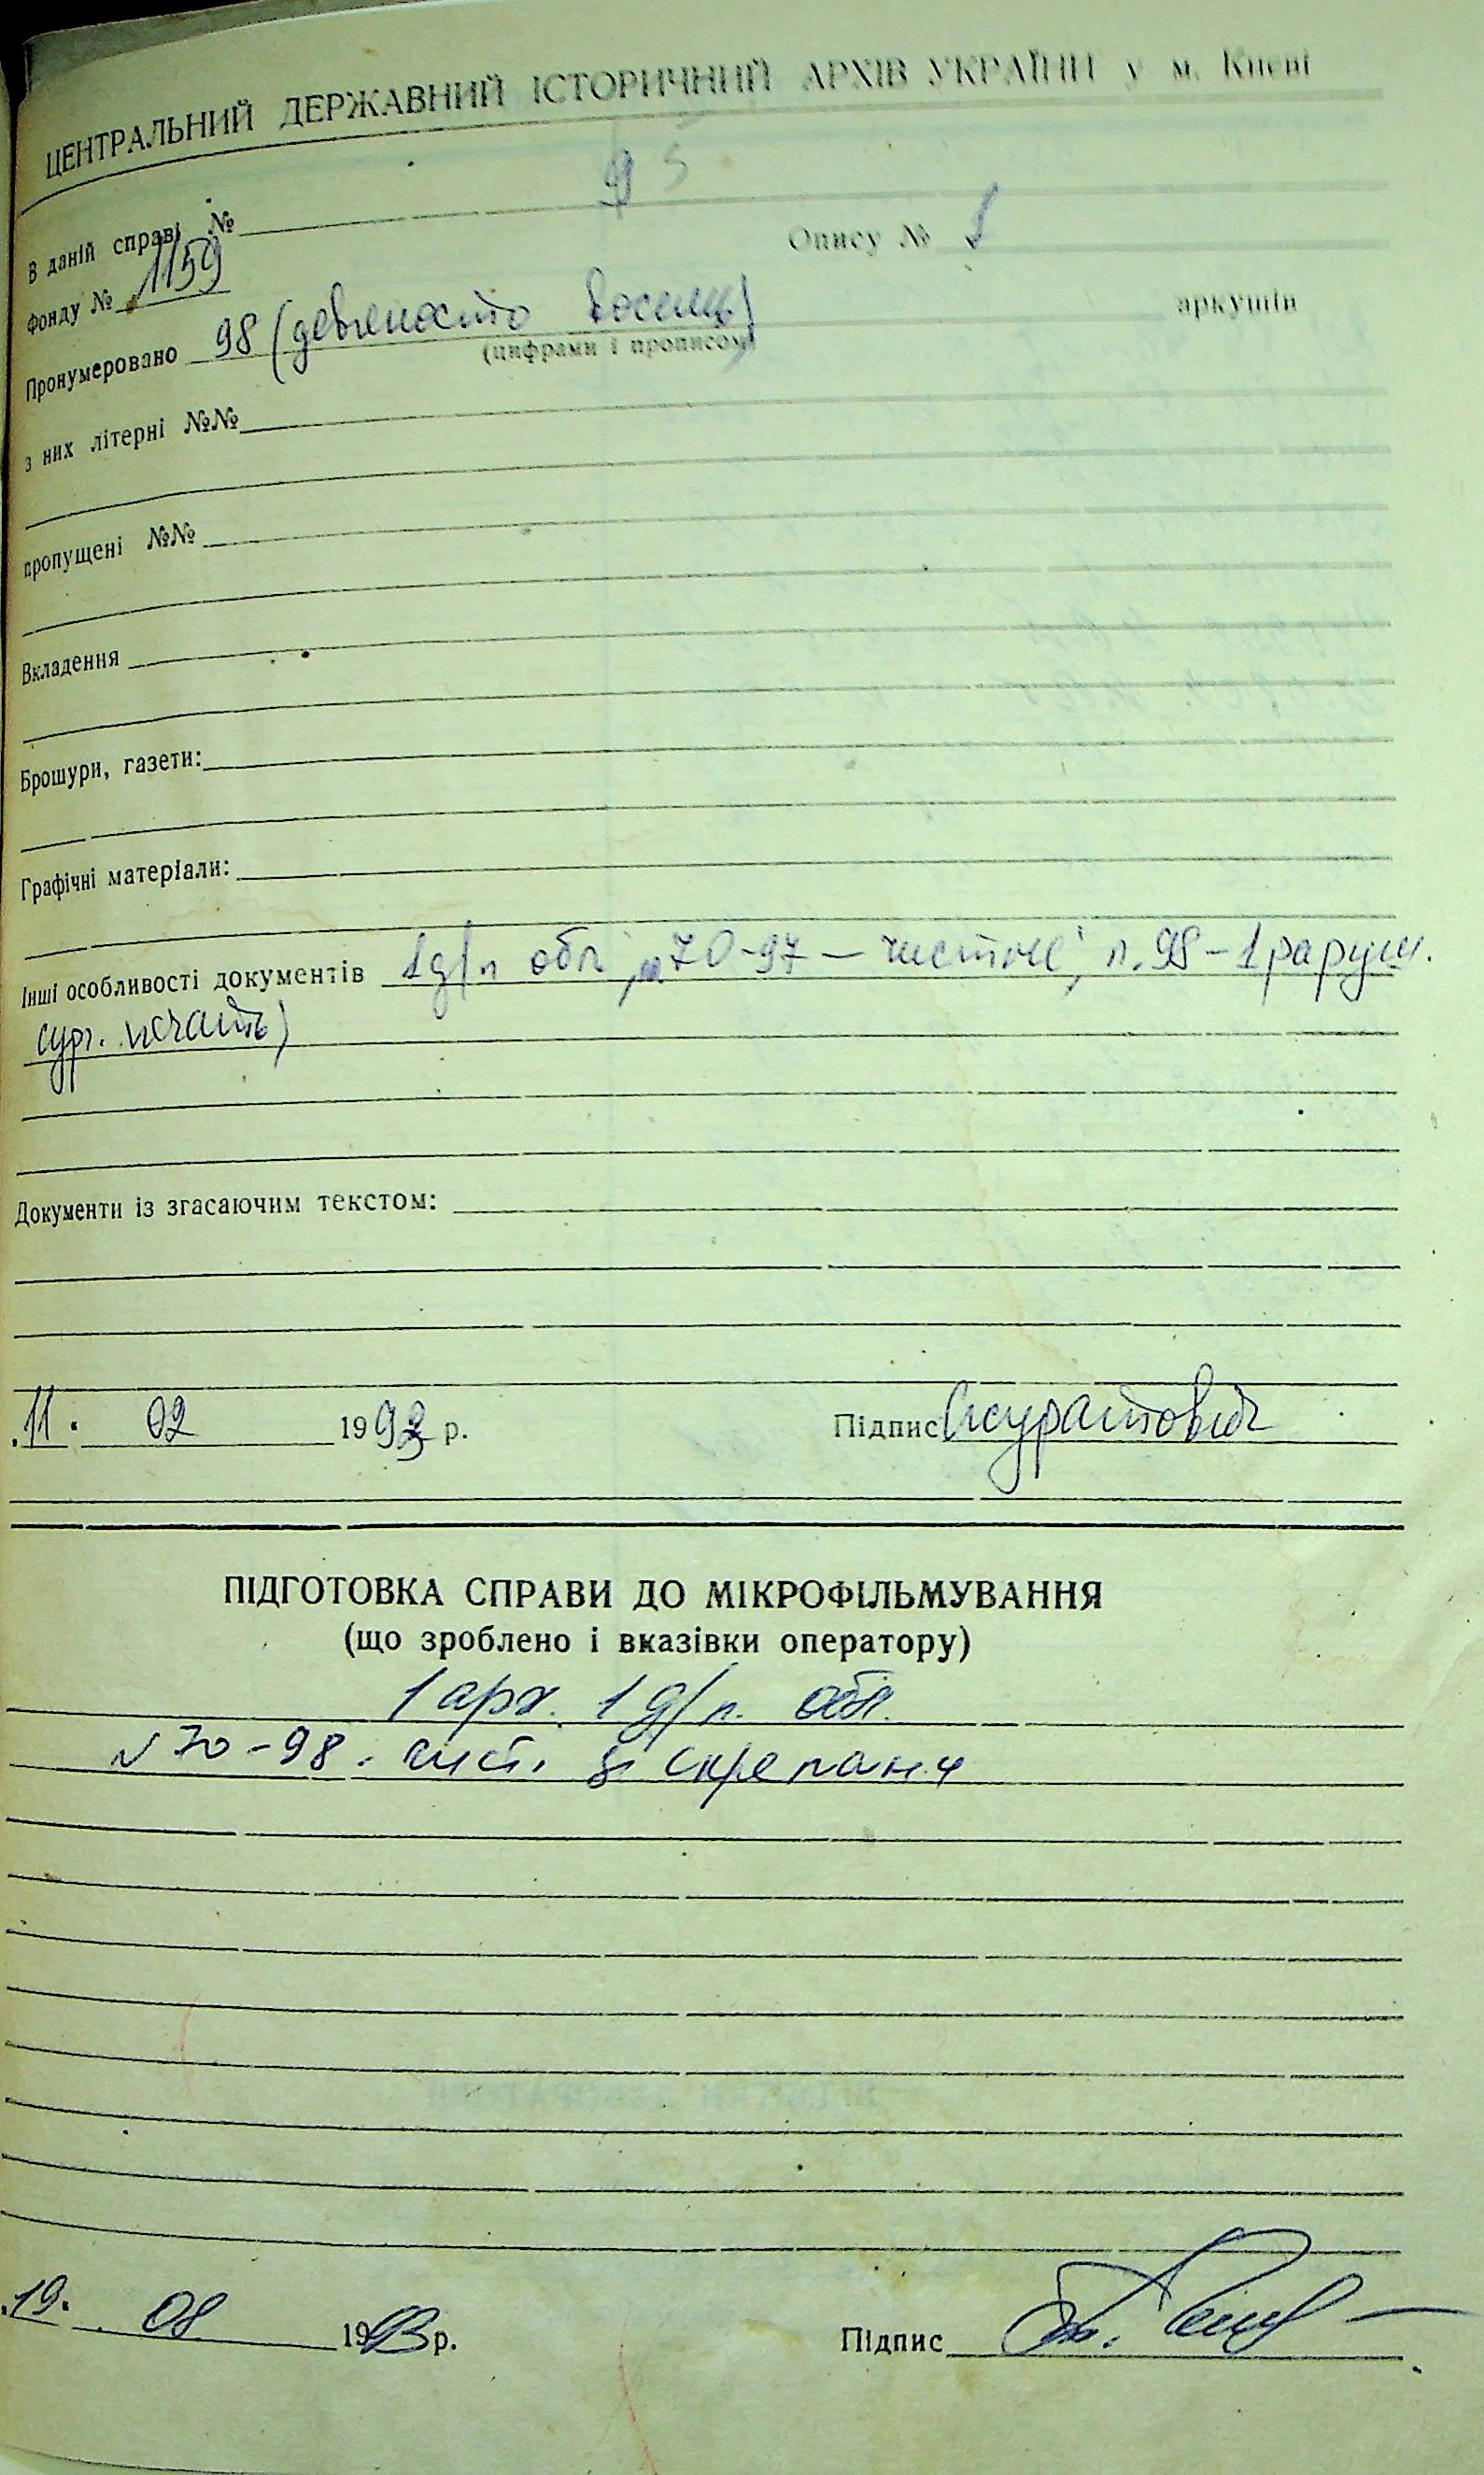 ЦЕНТРАЛЬНИЙ ДЕРЖАВНИЙ ІСТОРИЧНИЙ АРХІВ УКРАЇНИ у м. Києві
В даній справі № 95
Фонду № 1159 Опису № 1
Пронумеровано 98 (девяносто восемь) аркушів
(цифрами і прописом)
з них літерні №№
пропущені №№
Вкладення
Брошури, газети:
Графічні матеріали:
Інші особливості документів 1 д/п обл, 70-97 – чистые, л. 98 – 1
сург. печать)
Документи із згасаючим текстом:
11. 02 1993 р. Підпис
ПІДГОТОВКА СПРАВИ ДО МІКРОФІЛЬМУВАННЯ
(що зроблено і вказівки оператору)
1 арх. 1 д/п. обл.
70-98. чист.
19. 08 1993 р. Підпис